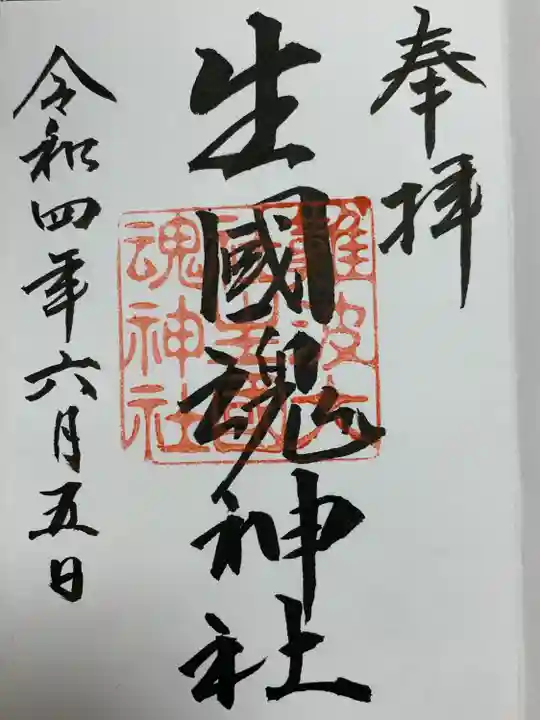 奉拝
生國魂神社
難波大
生國
魂神社
令和四年六月五日